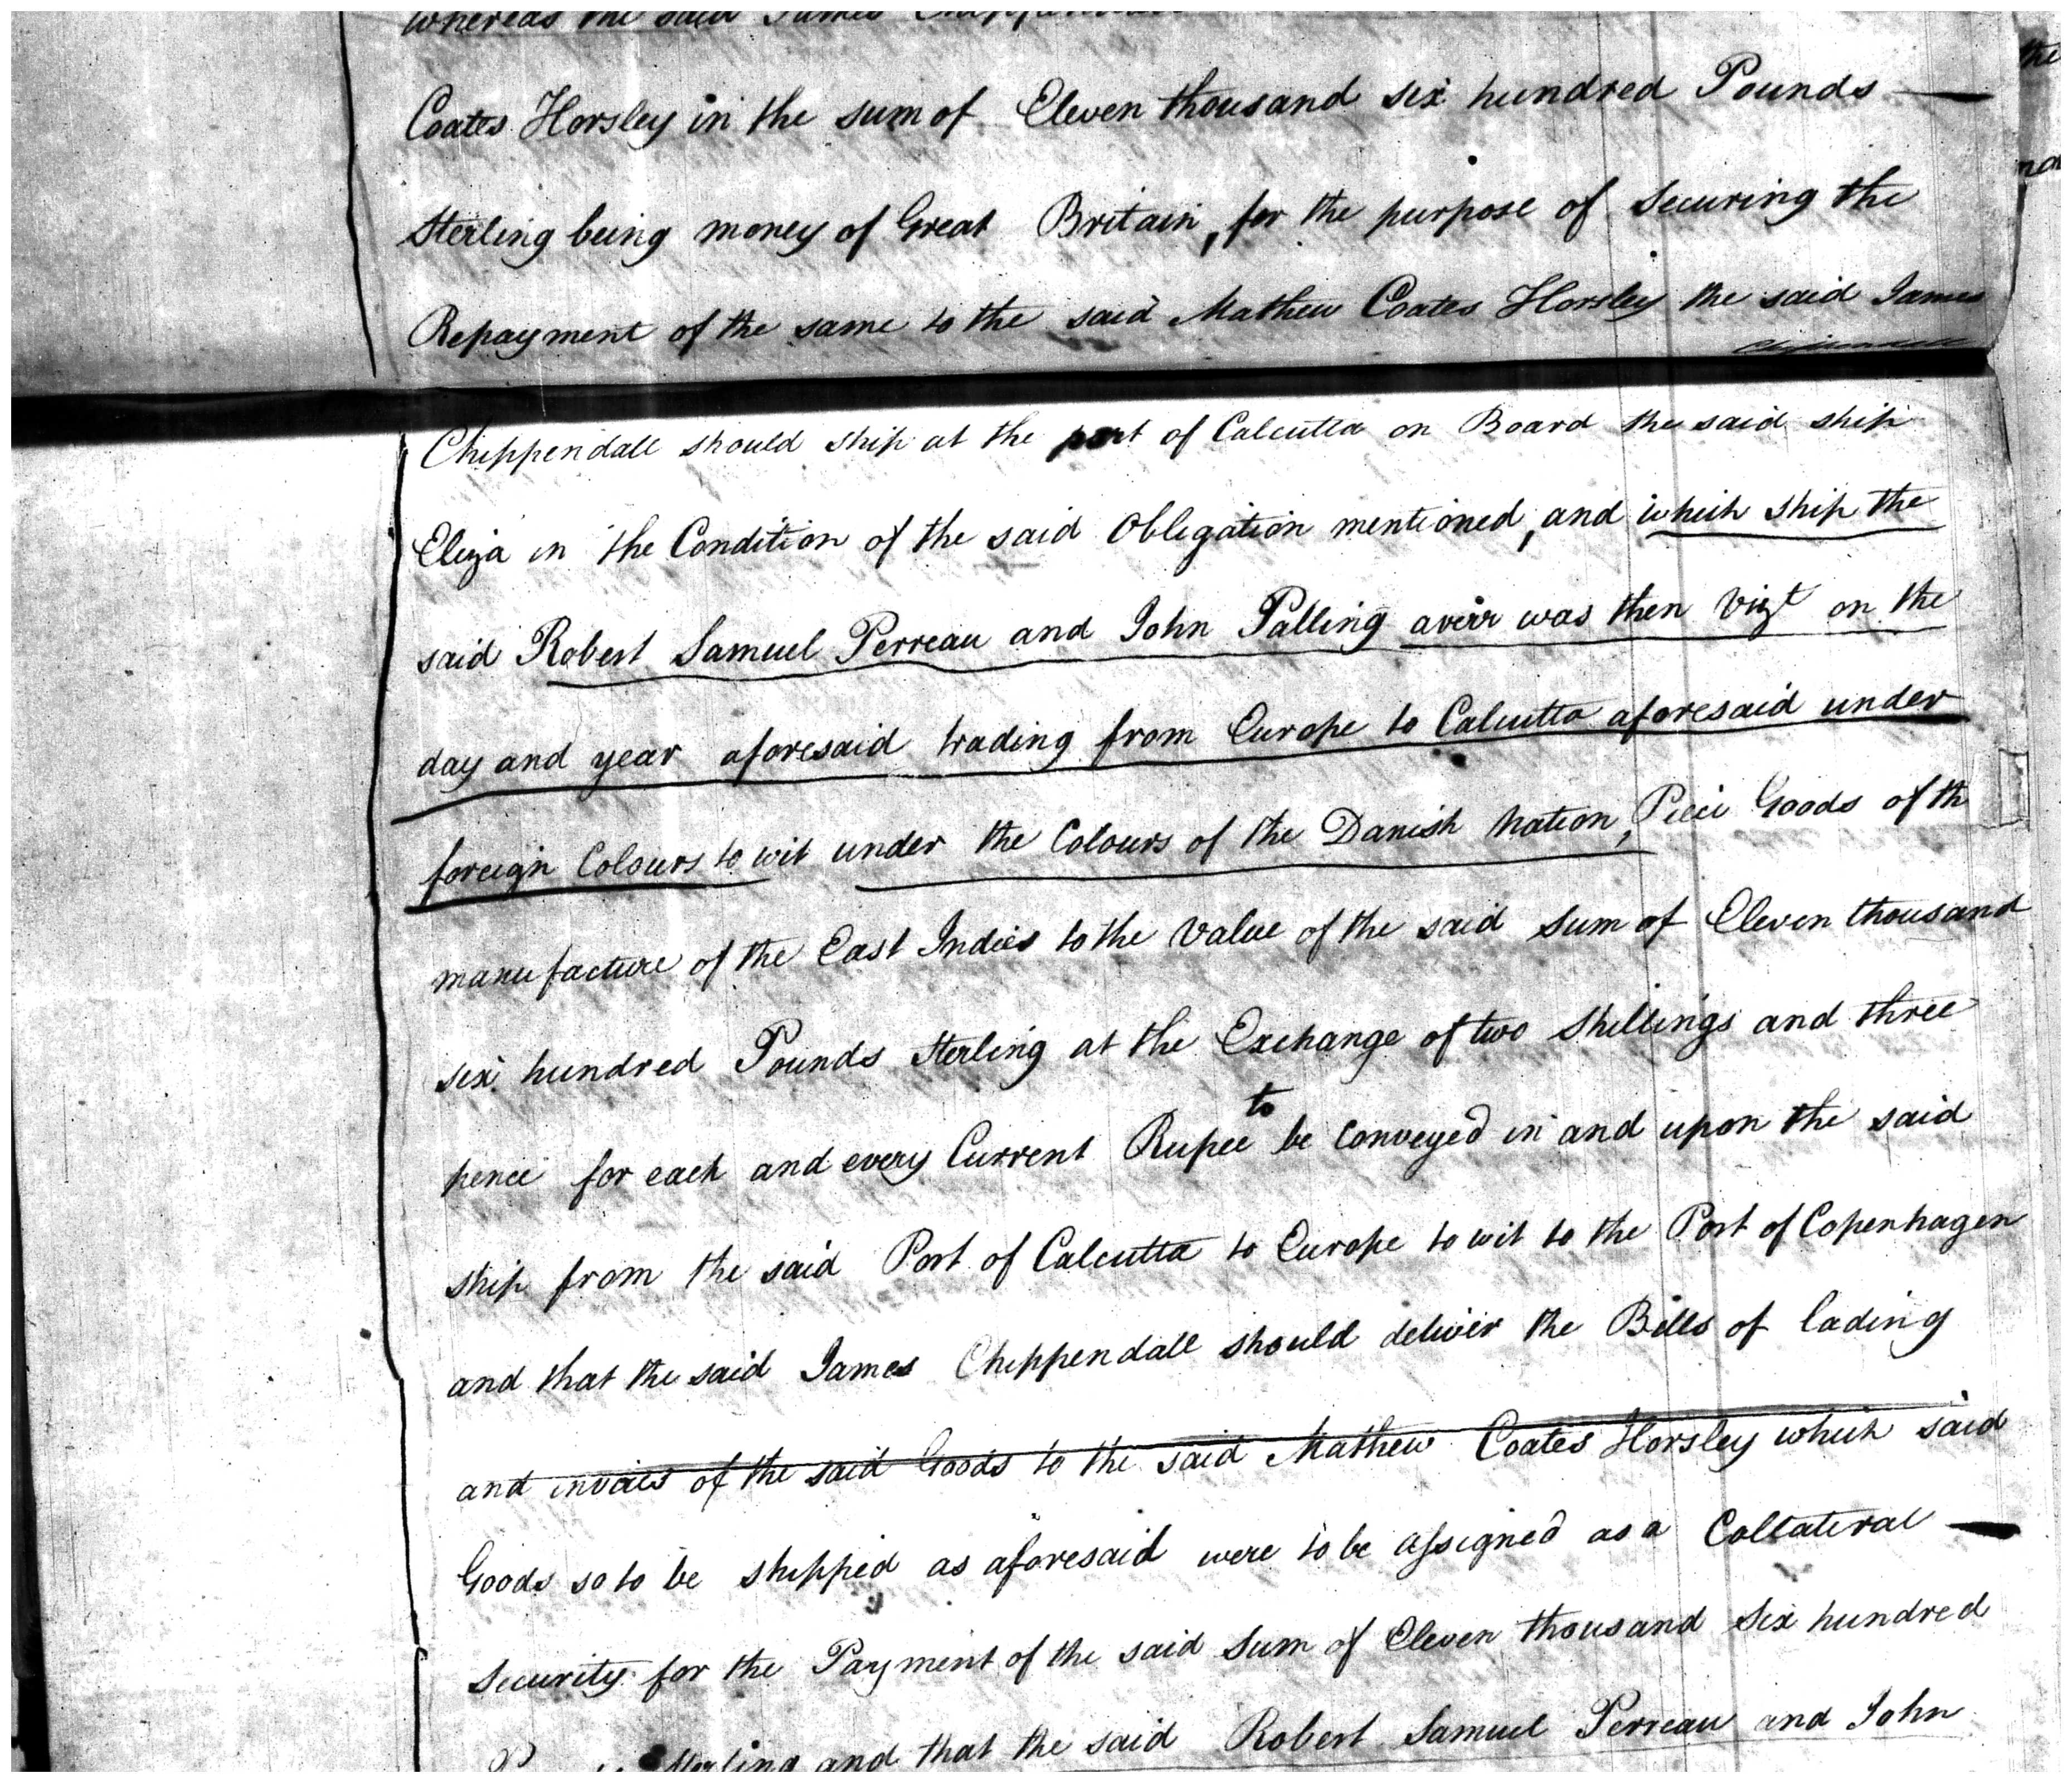 whereas the said James Chippendall
Coates Horsley in the sum of Eleven thousand six hundred Pounds
Sterling being money of Great Britain, for the purpose of Securing the
Repayment of the same to the said Mathew Coates Horsley the said James
Chippendall
Chippendall should ship at the port of Calcutta on Board the said ship
Eliza in the Condition of the said Obligation mentioned, and which ship the
said Robert Samuel Perreau and John Palling aver was then Vizt on the
day and year aforesaid trading from Europe to Calcutta aforesaid under
foreign Colours to wit under the Colours of the Danish Nation, Piece Goods of th
manufacture of the East Indies to the Value of the said Sum of Eleven thousand
six hundred Pounds Sterling at the Exchange of two Shillings and three
pence for each and every Current Rupee to be Conveyed in and upon the said
ship from the said Port of Calcutta to Europe to wit to the Port of Copenhagen
and that the said James Chippendall should deliver the Bills of lading
and invoies of the said Goods to the said Mathew Coates Horsley which said
Goods so to be shipped as aforesaid were to be assigned as a Collateral
Security for the Payment of the said Sum of Eleven thousand Six hundred
Sterling and that the said Robert Samuel Perreau and John